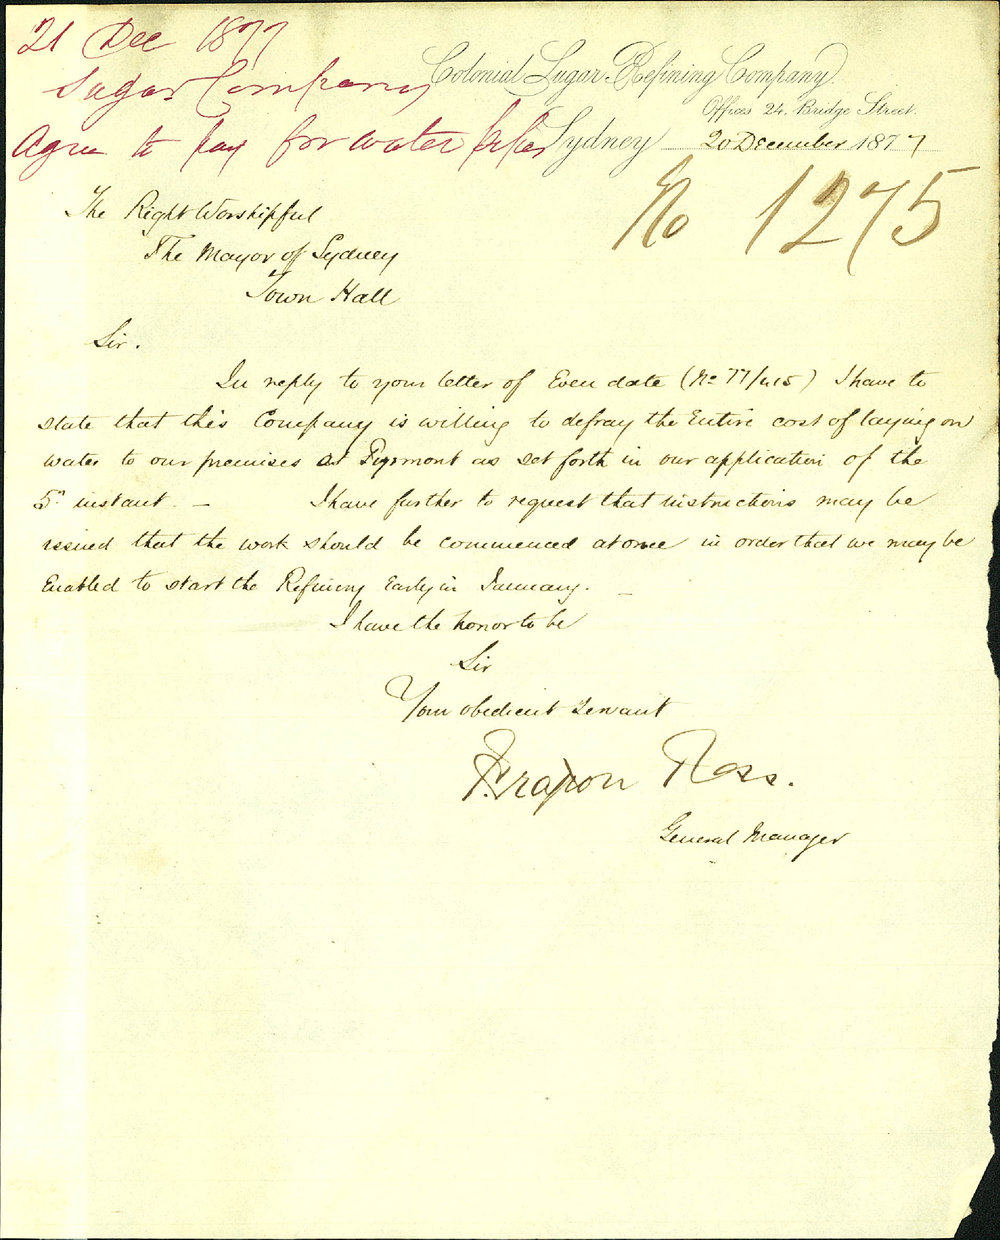 21 Dec 1877
Sugar Company
Agree to pay for water pipes
Colonial Sugar Refining Company
Offices 24, Bridge Street.
Sydney 20 December 1877
No 1275
The Right Worshipful
The Mayor of Sydney
Town Hall
Sir.
In reply to your letter of Even date (No 77/415) I have to
state that this Company is willing to defray the Entire cost of laying on
water to our premises at Pyrmont as set forth in our application of the
5th instant. — I have further to request that instructions may be
issued that the work should be commenced at once in order that we may be
Enabled to start the Refinery Early in January. —
I have the honor to be
Sir
Your obedient Servant
Ross.
General Manager